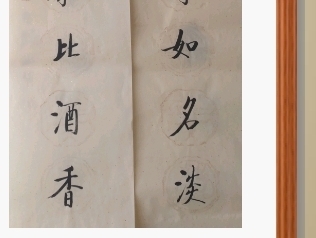 如名淡
比酒香